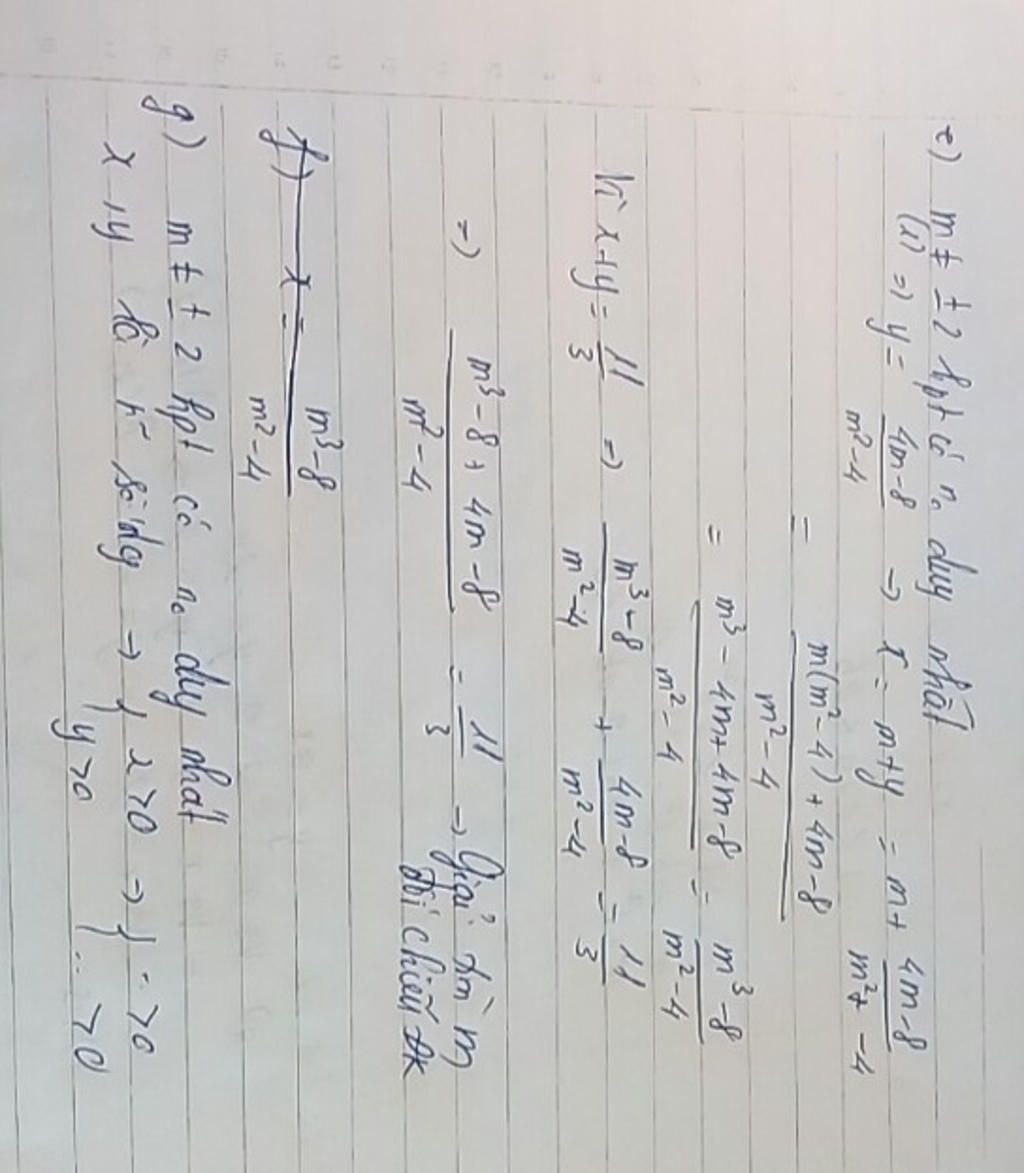 e) m ≠ ± 2 hpt có n₀ duy nhất
(1) => y = (4m-8)/(m²-4) → x = m+y = m + (4m-8)/(m²-4)
= (m(m²-4)+4m-8)/(m²-4)
= (m³-4m+4m-8)/(m²-4) = (m³-8)/(m²-4)
Vì x+y = 11/3 => (m³-8)/(m²-4) + (4m-8)/(m²-4) = 11/3
=> (m³-8+4m-8)/(m²-4) = 11/3 → Giải tìm m
Đối chiếu ĐK
f) x = (m³-8)/(m²-4)
g) m ≠ ± 2 hpt có n₀ duy nhất
x, y là số dương → { x>0 → { .. >0
{ y>0 { .. >0